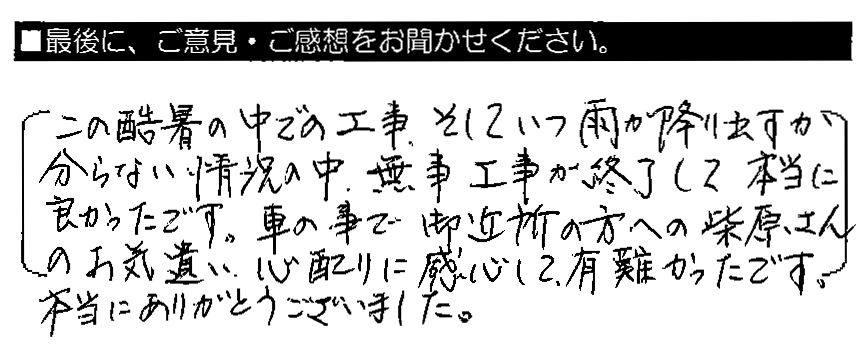 ■最後に、ご意見・ご感想をお聞かせください。
この酷暑の中での工事、そしていつ雨が降り出すか
分らない情況の中、無事工事が終了して本当に
良かったです。車の事で御近所の方への柴原さん
のお気遣い、心配りに感心して、有難かったです。
本当にありがとうございました。